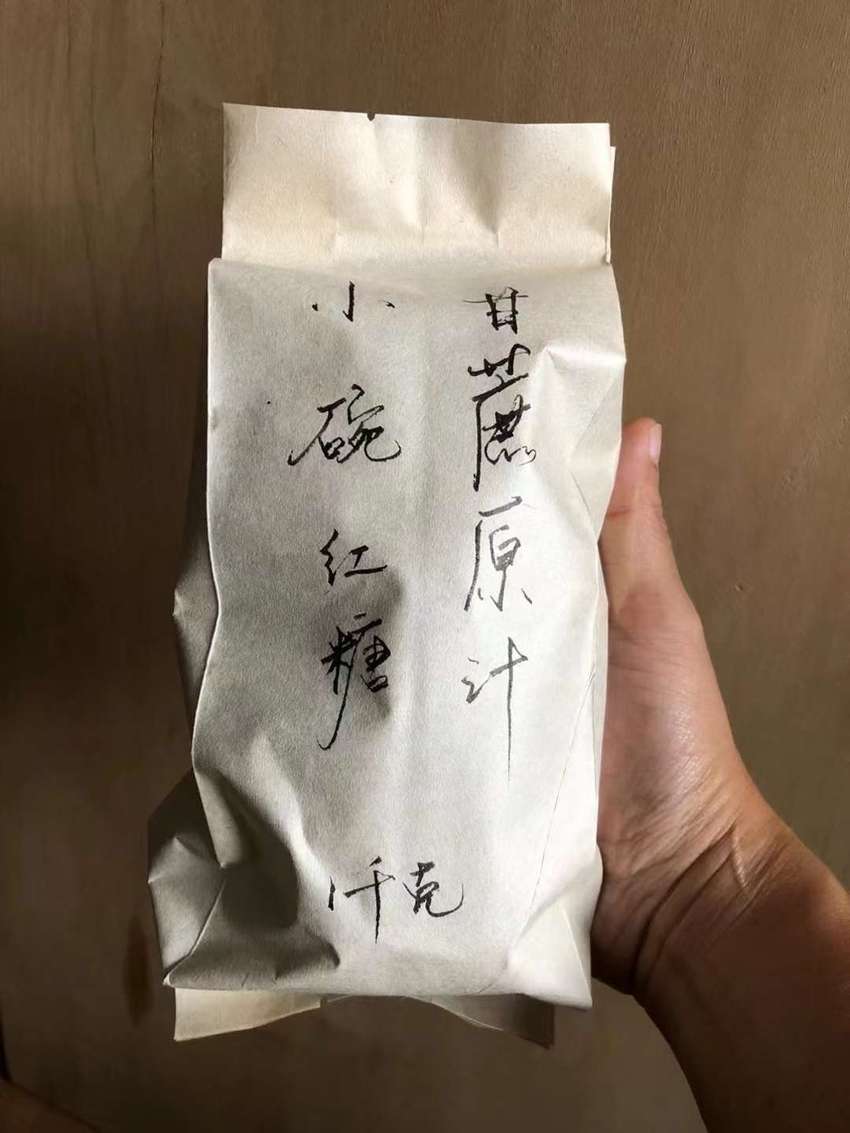 甘蔗原汁
小碗红糖
1千克